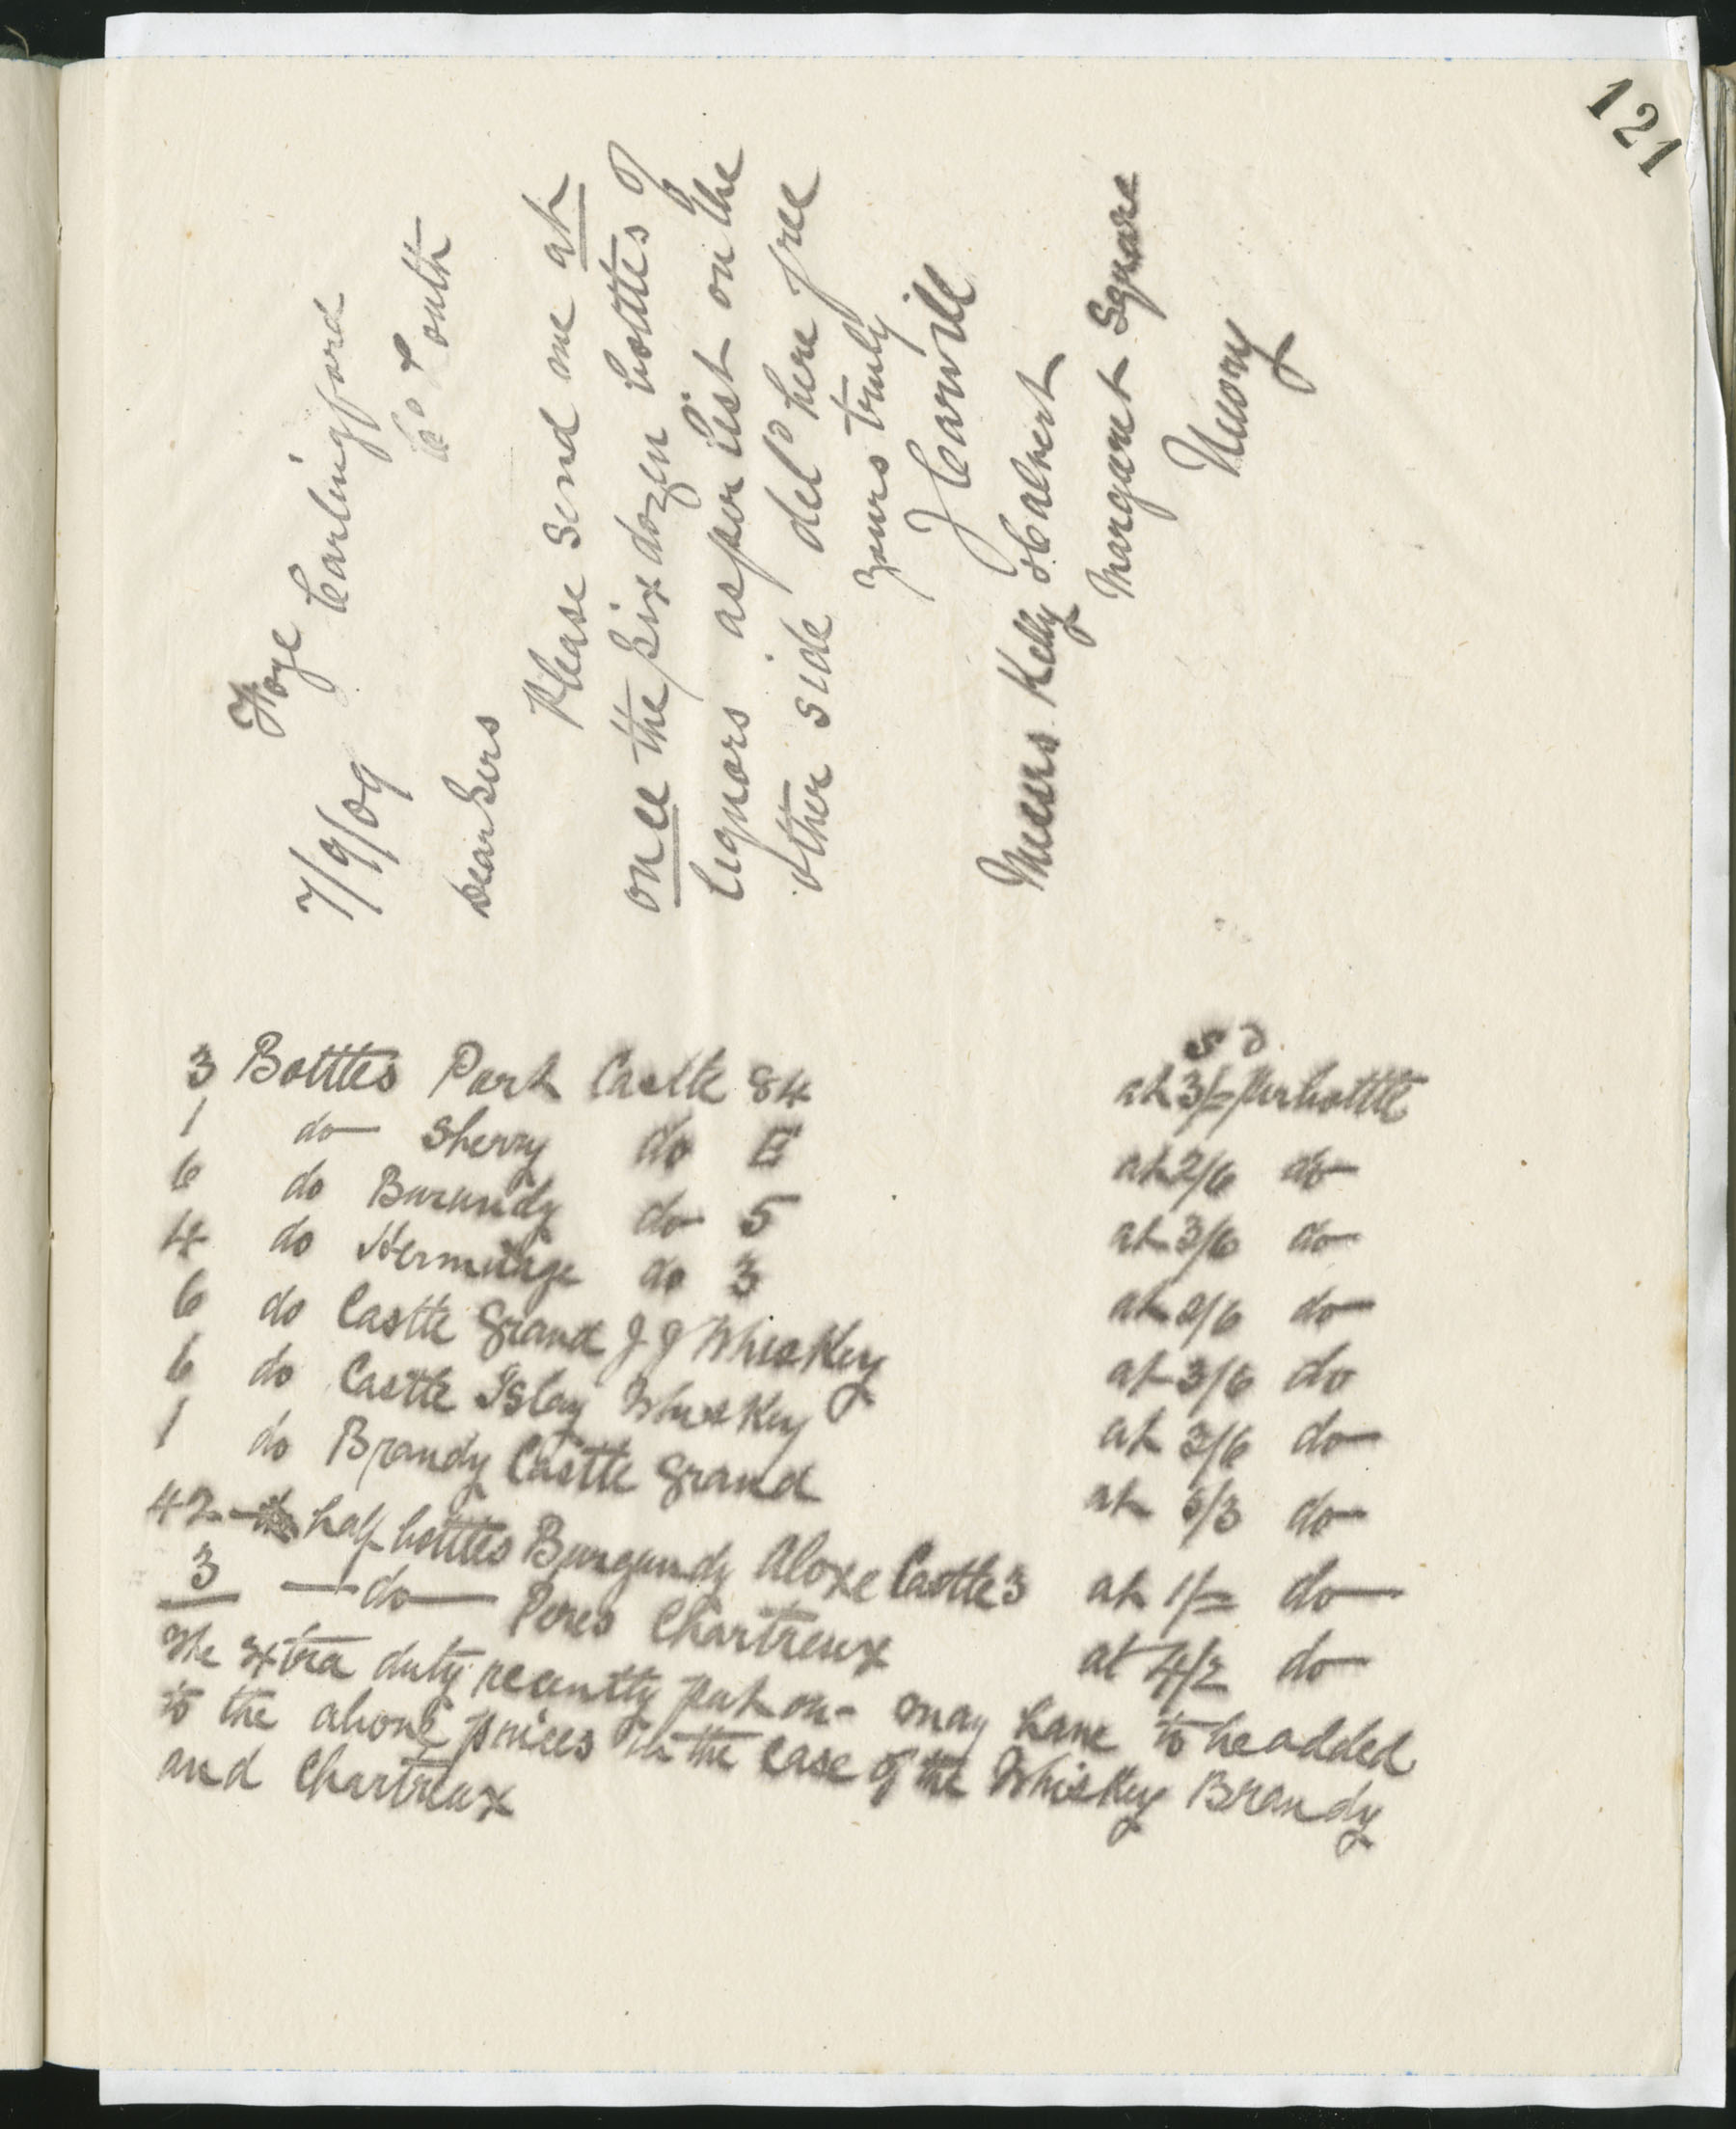 121
Foye Carlingford
7/9/09 Co Louth
Dear Sirs
Please send me at
once the six dozen bottles of
liquors as per list on the
other side del^d here free
yours truly
J Carvill
Messrs Kelly & Calvert
Margaret Square
Newry
s d
3 Bottles Port Castle 84 at 3/= per bottle
1 do Sherry do E at 2/6 do
6 do Burundy do 5 at 3/6 do
4 do Hermitage do 3 at 2/6 do
6 do Castle Grand J J Whiskey at 3/6 do
6 do Castle Islay Whiskey at 3/6 do
1 do Brandy Castle Grand at 5/3 do
42 half bottles Burgundy Aloxe Castle 3 at 1/= do
3 do Peres Chartreux at 4/2 do
The xtra duty recently put on - may have to be added
to the above prices in the case of the Whiskey Brandy
and Chartreux